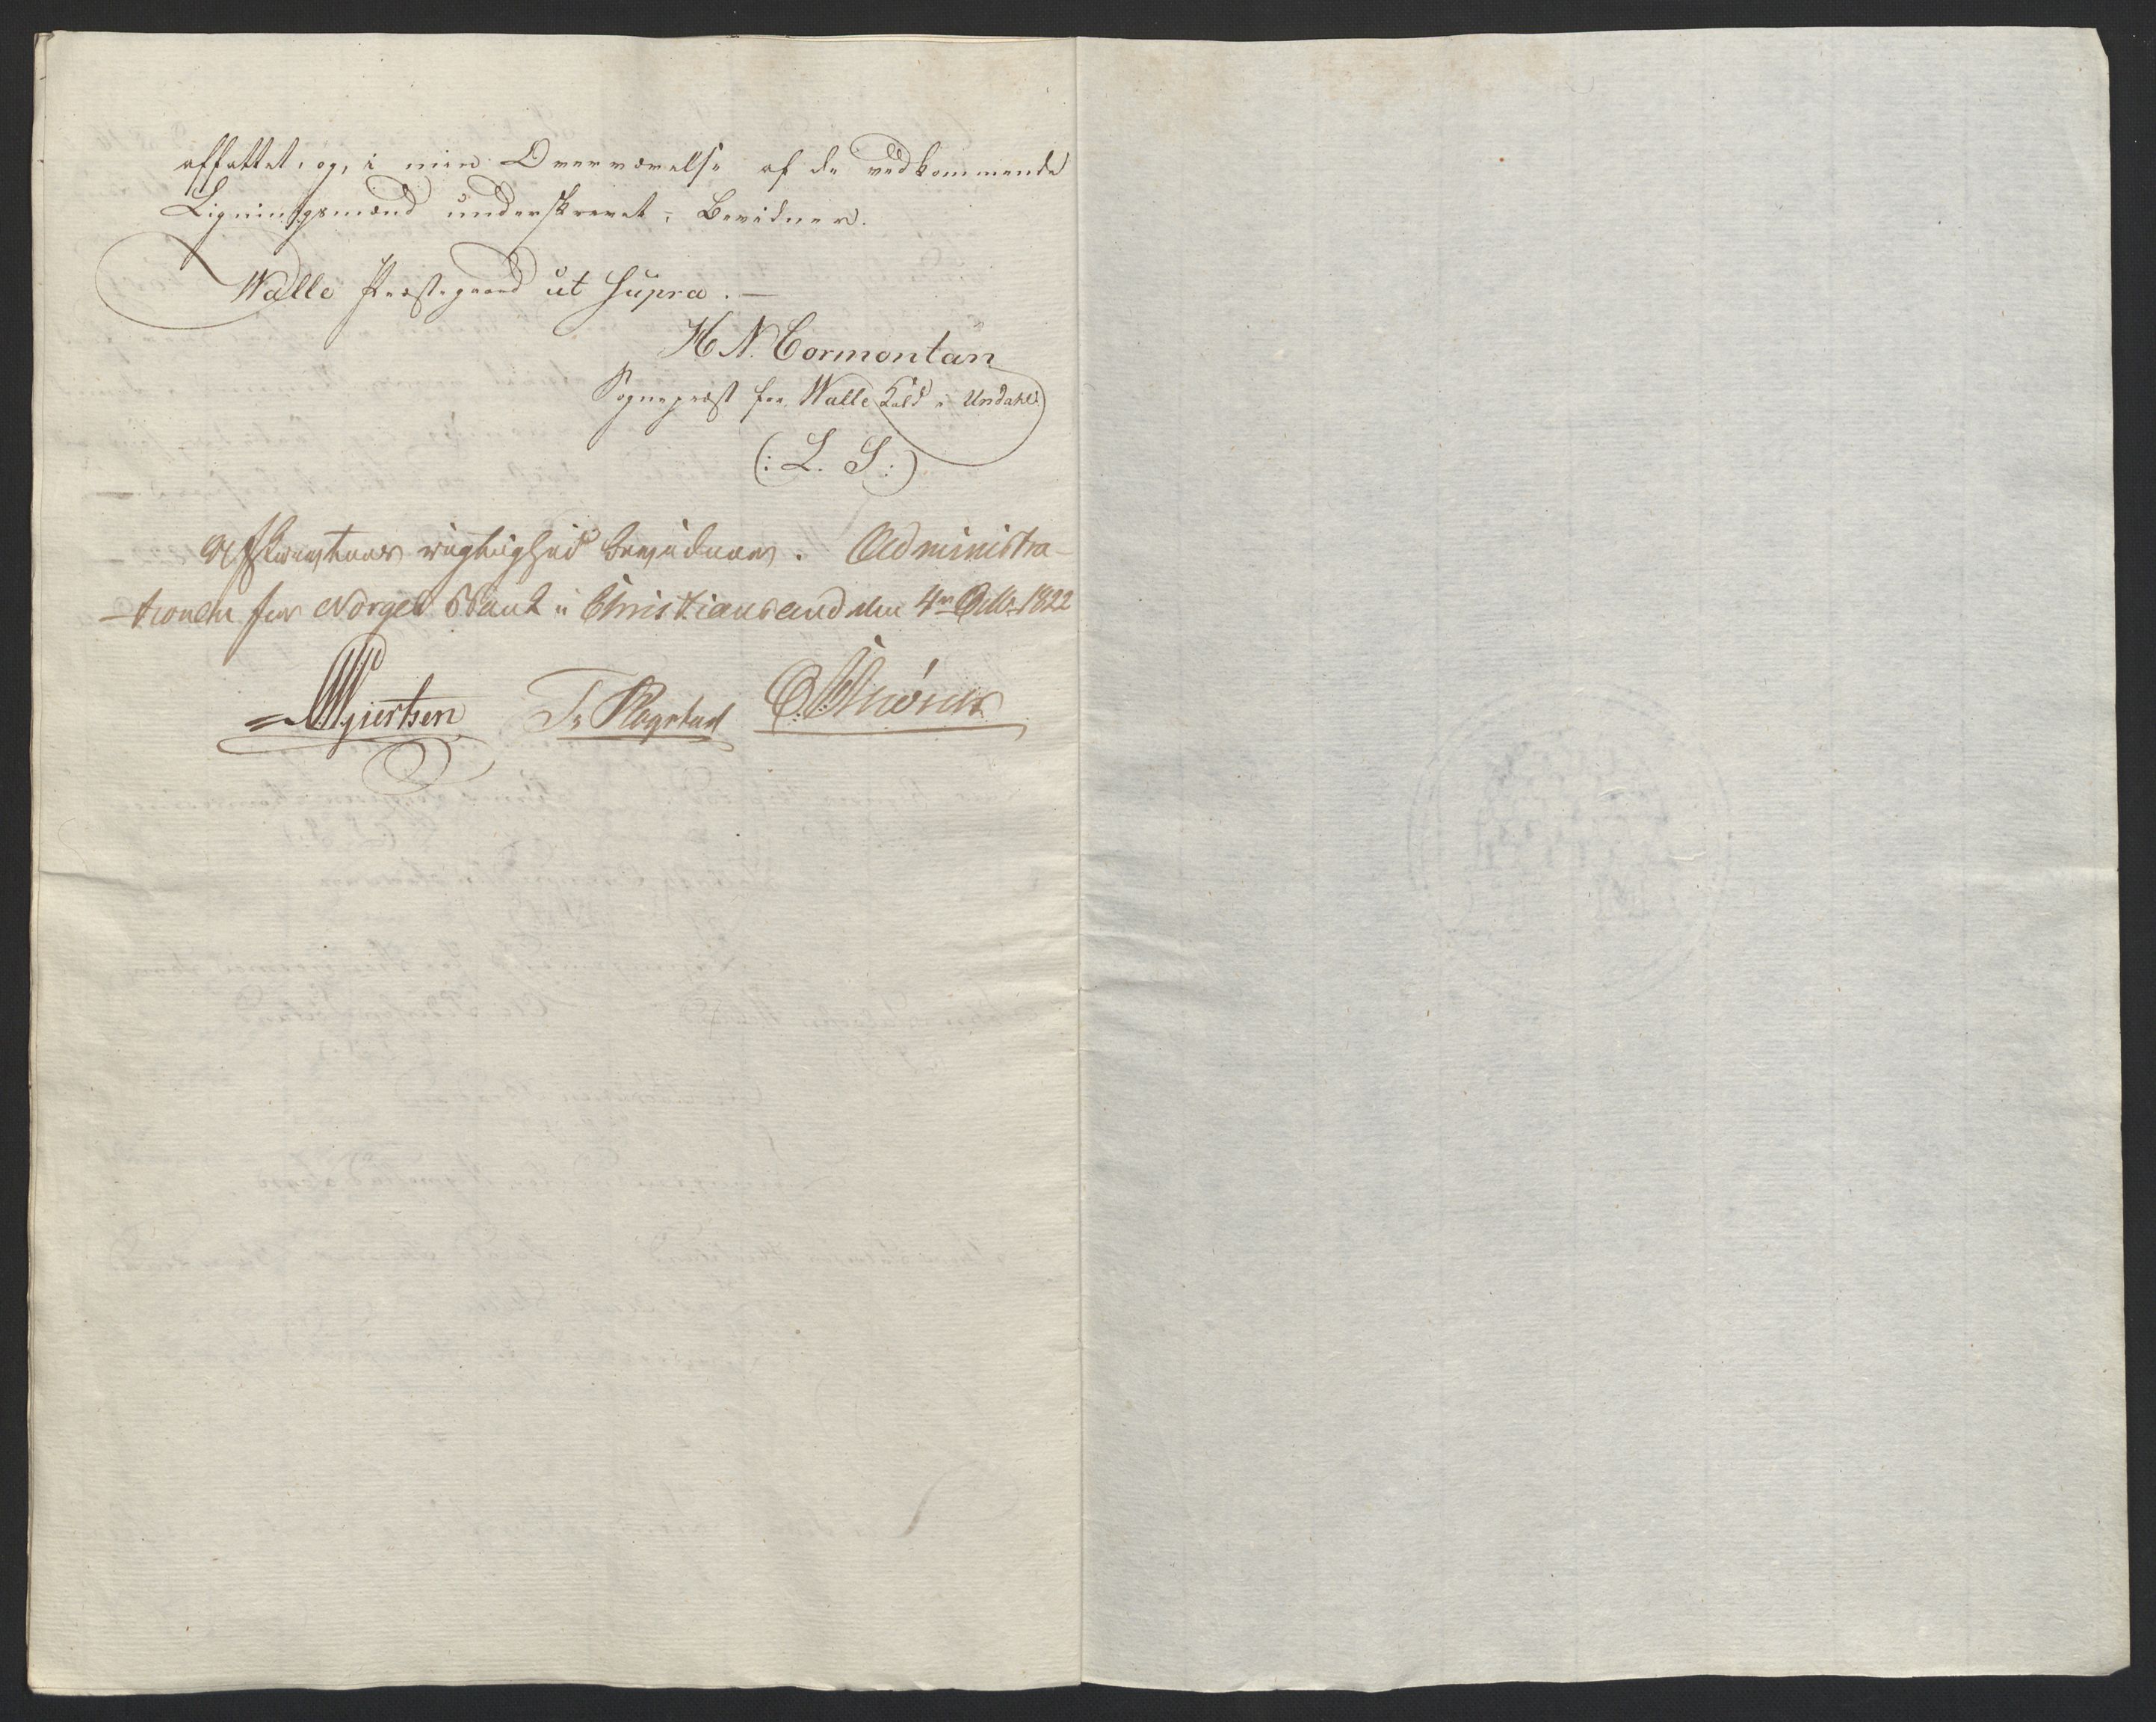 affattet, og, i min Overværelse af de vedkommende
Ligningsmænd underskrevet, Bevidner.
Walle Præstegaard ut supra. —
H N. Cormontan
Sognepræst for Walle Kald i Undahl
(: L. S :)
Afskriftens rigtighed bevidner. Administra-
-tionen for Norges Bank i Christiansand den 4de 1822
Gjertsen